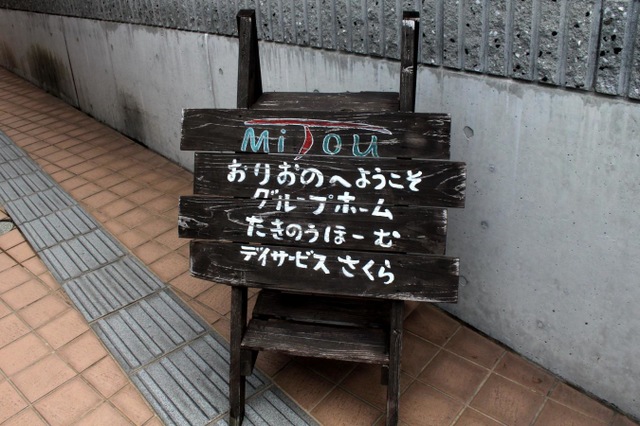 MiTou
おりおのへようこそ
グループホーム
たきのうほーむ
デイサービス さくら